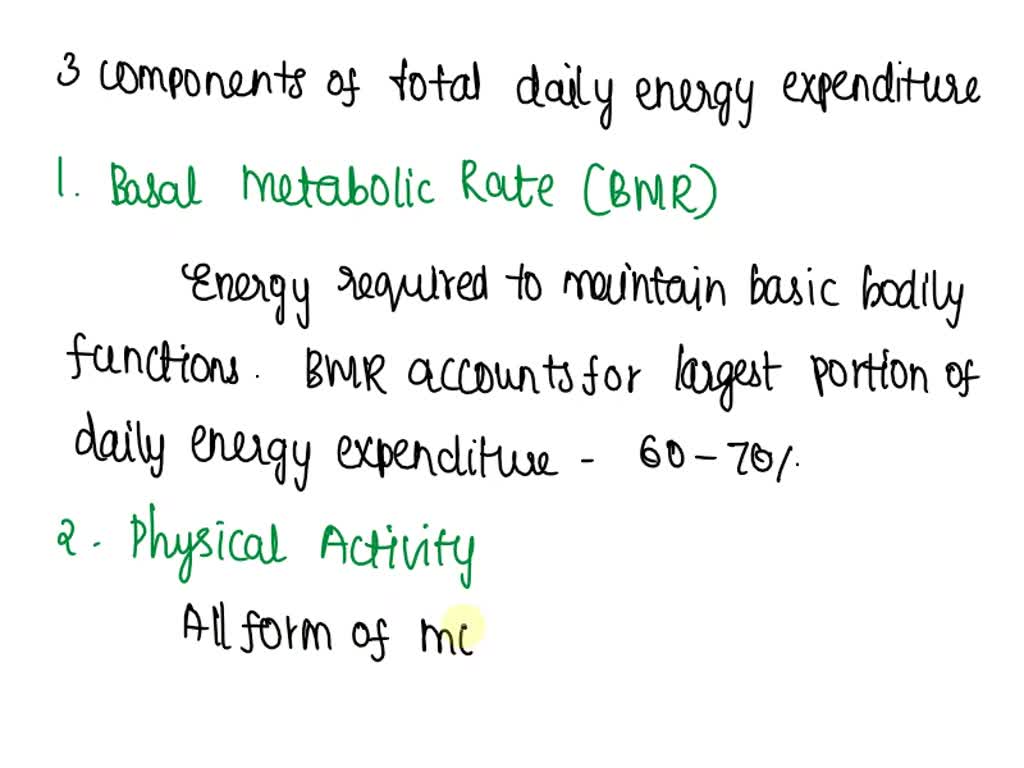 3 components of total daily energy expenditure
1. Basal Metabolic Rate (BMR)
Energy required to maintain basic bodily
functions. BMR accounts for largest portion of
daily energy expenditure - 60-70%.
2. Physical Activity
All form of mo